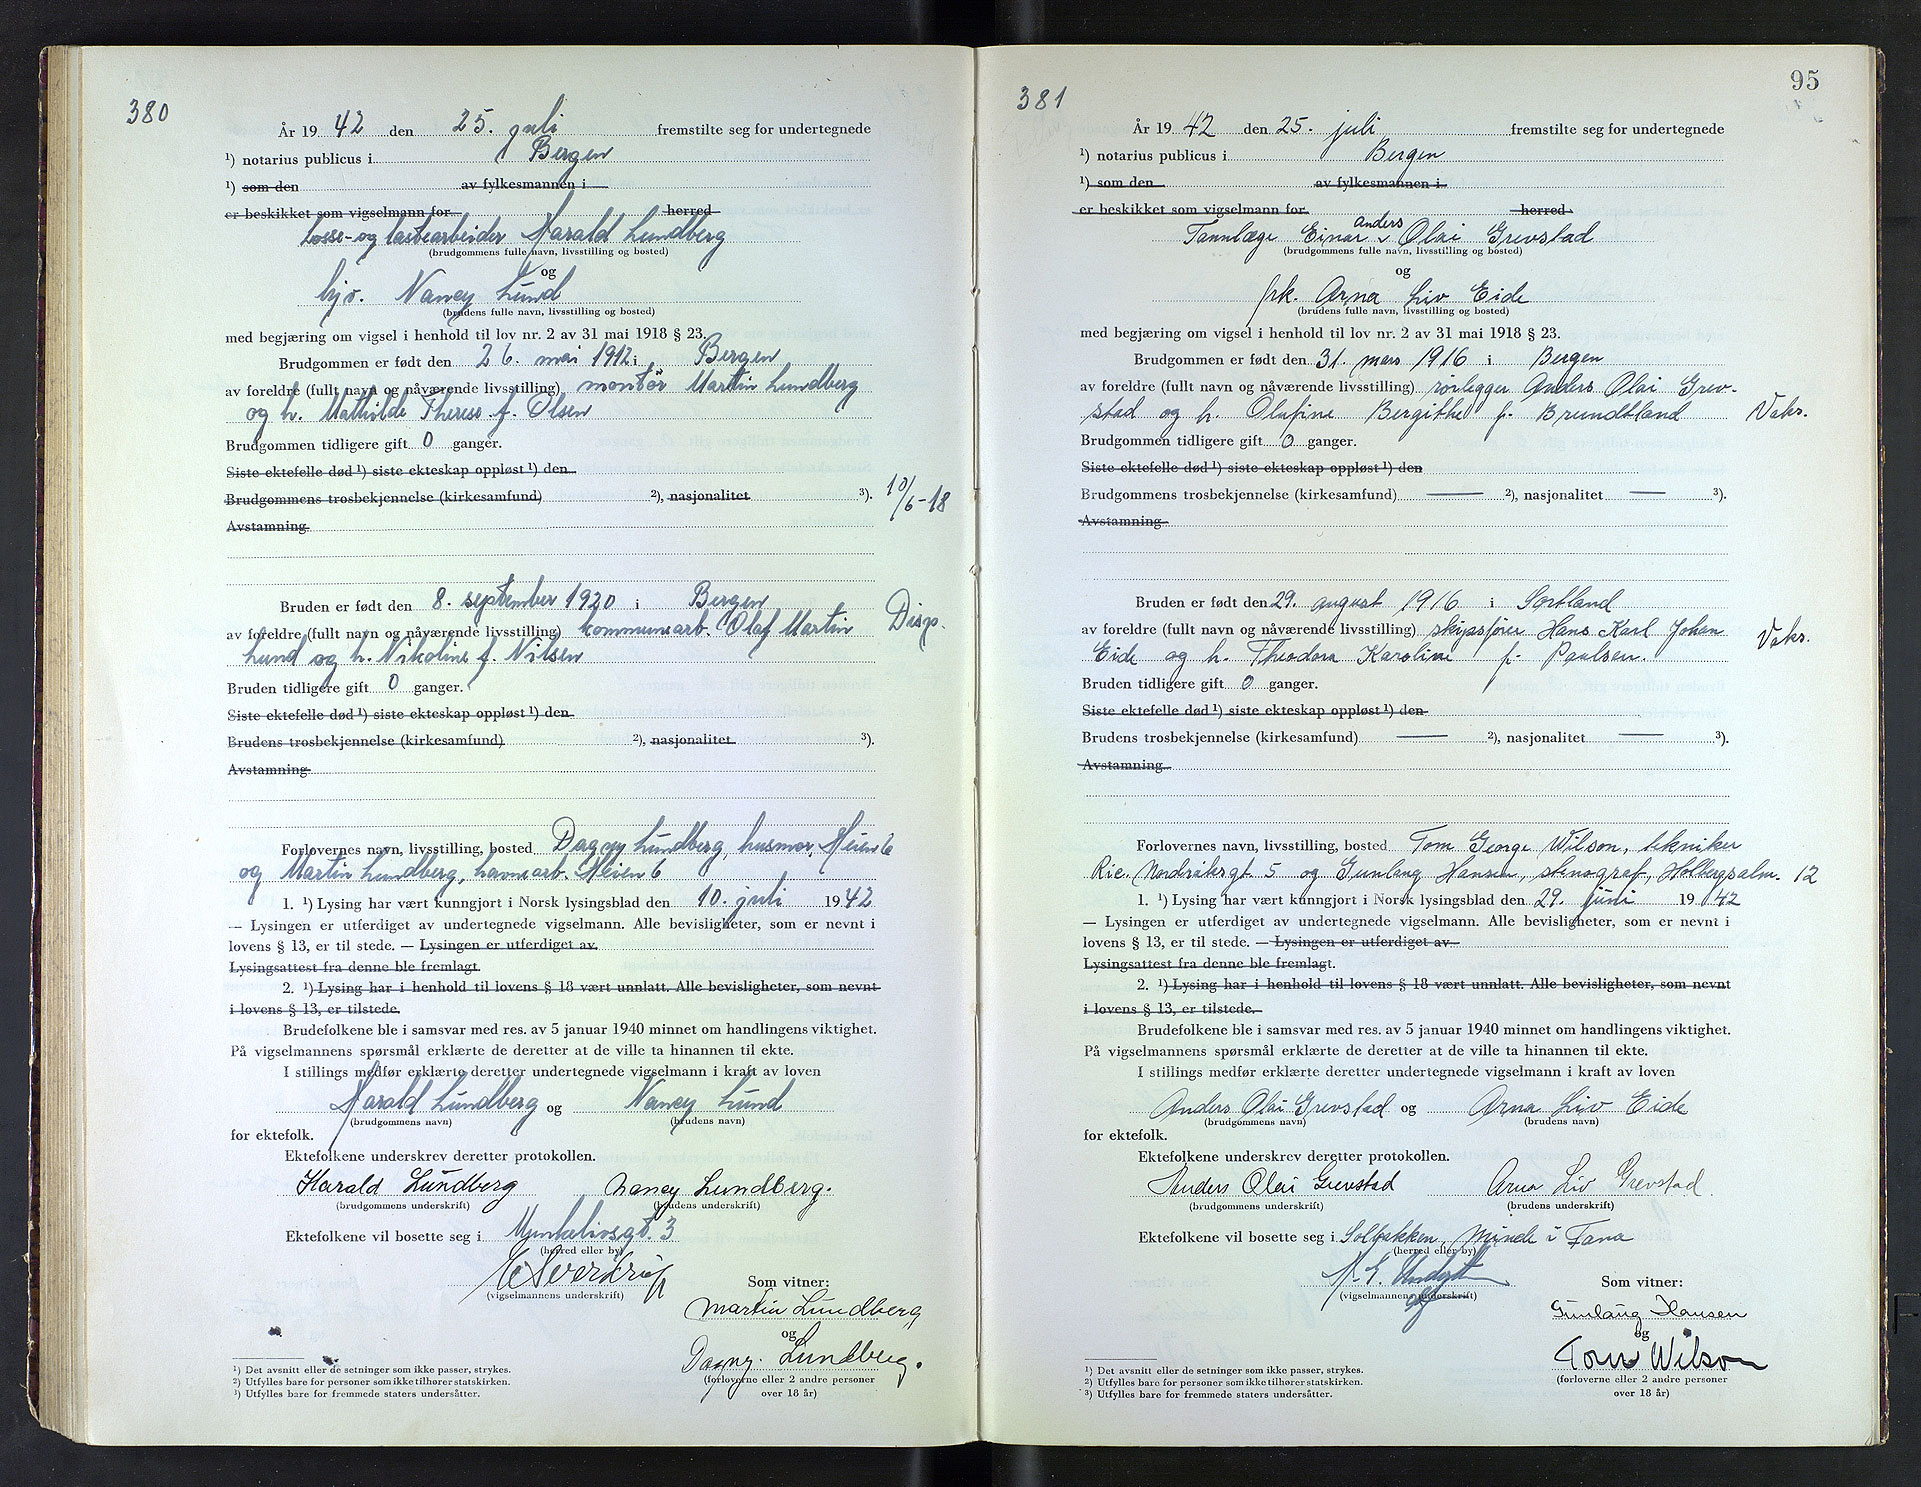 380
År 19 42 den 25. juli fremstilte seg for undertegnede
¹) notarius publicus i Bergen
¹) som den av fylkesmannen i
er beskikket som vigselmann for herred
Losse- og lastearbeider Harald Lundberg
(brudgommens fulle navn, livsstilling og bosted)
og
Nancy Lund
(brudens fulle navn, livsstilling og bosted)
med begjæring om vigsel i henhold til lov nr. 2 av 31 mai 1918 § 23.
Brudgommen er født den 26. mai 1912 i Bergen
av foreldre (fullt navn og nåværende livsstilling) montør Martin Lundberg
og h. Mathilde Therese f. Olsen
Brudgommen tidligere gift 0 ganger.
Siste ektefelle død ¹) siste ekteskap oppløst ¹) den
Brudgommens trosbekjennelse (kirkesamfund) ²), nasjonalitet ³).
10/6-18
Avstamning
Bruden er født den 8. september 1920 i Bergen
av foreldre (fullt navn og nåværende livsstilling) kommunearb. Olaf Martin
Disp.
Lund og h. Nikoline f. Nilsen
Bruden tidligere gift 0 ganger.
Siste ektefelle død ¹) siste ekteskap oppløst ¹) den
Brudens trosbekjennelse (kirkesamfund) ²), nasjonalitet ³).
Avstamning
Forlovernes navn, livsstilling, bosted Dagny Lundberg, husmor, Heien 6
og Martin Lundberg, havnearb. Heien 6
1. ¹) Lysing har vært kunngjort i Norsk lysingsblad den 10. juli 1942
— Lysingen er utferdiget av undertegnede vigselmann. Alle bevisligheter, som er nevnt i
lovens § 13, er til stede. — Lysingen er utferdiget av
Lysingsattest fra denne ble fremlagt
2. ¹) Lysing har i henhold til lovens § 18 vært unnlatt. Alle bevisligheter, som nevnt
i lovens § 13, er tilstede.
Brudefolkene ble i samsvar med res. av 5 januar 1940 minnet om handlingens viktighet.
På vigselmannens spørsmål erklærte de deretter at de ville ta hinannen til ekte.
I stillings medfør erklærte deretter undertegnede vigselmann i kraft av loven
Harald Lundberg og Nancy Lund
(brudgommens navn) (brudens navn)
for ektefolk.
Ektefolkene underskrev deretter protokollen.
Harald Lundberg Nancy Lundberg.
(brudgommens underskrift) (brudens underskrift)
Ektefolkene vil bosette seg i Munkelivsgt. 3
(herred eller by)
(vigselmannens underskrift)
Som vitner:
Martin Lundberg
og
Dagny. Lundberg.
(forloverne eller 2 andre personer
over 18 år)
¹) Det avsnitt eller de setninger som ikke passer, strykes.
²) Utfylles bare for personer som ikke tilhører statskirken.
³) Utfylles bare for fremmede staters undersåtter.
95
381
År 19 42 den 25. juli fremstilte seg for undertegnede
¹) notarius publicus i Bergen
¹) som den av fylkesmannen i
er beskikket som vigselmann for herred
anders
Tannlæge Einar Olai Grevstad
(brudgommens fulle navn, livsstilling og bosted)
og
frk. Arna Liv Eide
(brudens fulle navn, livsstilling og bosted)
med begjæring om vigsel i henhold til lov nr. 2 av 31 mai 1918 § 23.
Brudgommen er født den 31. mars 1916 i Bergen
av foreldre (fullt navn og nåværende livsstilling) rørlegger Anders Olai Grev-
stad og h. Olufine Bergithe f. Brundtland
Vaks.
Brudgommen tidligere gift 0 ganger.
Siste ektefelle død ¹) siste ekteskap oppløst ¹) den
Brudgommens trosbekjennelse (kirkesamfund) — ²), nasjonalitet — ³).
Avstamning
Bruden er født den 29. august 1916 i Sortland
av foreldre (fullt navn og nåværende livsstilling) skipsfører Hans Karl Johan
Vaks.
Eide og h. Theodora Karoline f. Paulsen.
Bruden tidligere gift 0 ganger.
Siste ektefelle død ¹) siste ekteskap oppløst ¹) den
Brudens trosbekjennelse (kirkesamfund) — ²), nasjonalitet — ³).
Avstamning
Forlovernes navn, livsstilling, bosted Tom George Wilson, tekniker
Ric. Nordråksgt 5 og Gunlaug Hansen, stenograf, Holbergsalm. 12
1. ¹) Lysing har vært kunngjort i Norsk lysingsblad den 29. juni 19 42
— Lysingen er utferdiget av undertegnede vigselmann. Alle bevisligheter, som er nevnt i
lovens § 13, er til stede. — Lysingen er utferdiget av
Lysingsattest fra denne ble fremlagt.
2. ¹) Lysing har i henhold til lovens § 18 vært unnlatt. Alle bevisligheter, som nevnt
i lovens § 13, er tilstede.
Brudefolkene ble i samsvar med res. av 5 januar 1940 minnet om handlingens viktighet.
På vigselmannens spørsmål erklærte de deretter at de ville ta hinannen til ekte.
I stillings medfør erklærte deretter undertegnede vigselmann i kraft av loven
Anders Olai Grevstad og Arna Liv Eide
(brudgommens navn) (brudens navn)
for ektefolk.
Ektefolkene underskrev deretter protokollen.
Anders Olai Grevstad Arna Liv Grevstad.
(brudgommens underskrift) (brudens underskrift)
Ektefolkene vil bosette seg i Solbakken, Minde i Fana
(herred eller by)
(vigselmannens underskrift)
Som vitner:
Gunlaug Hansen
og
Tom Wilson
(forloverne eller 2 andre personer
over 18 år)
¹) Det avsnitt eller de setninger som ikke passer, strykes.
²) Utfylles bare for personer som ikke tilhører statskirken.
³) Utfylles bare for fremmede staters undersåtter.